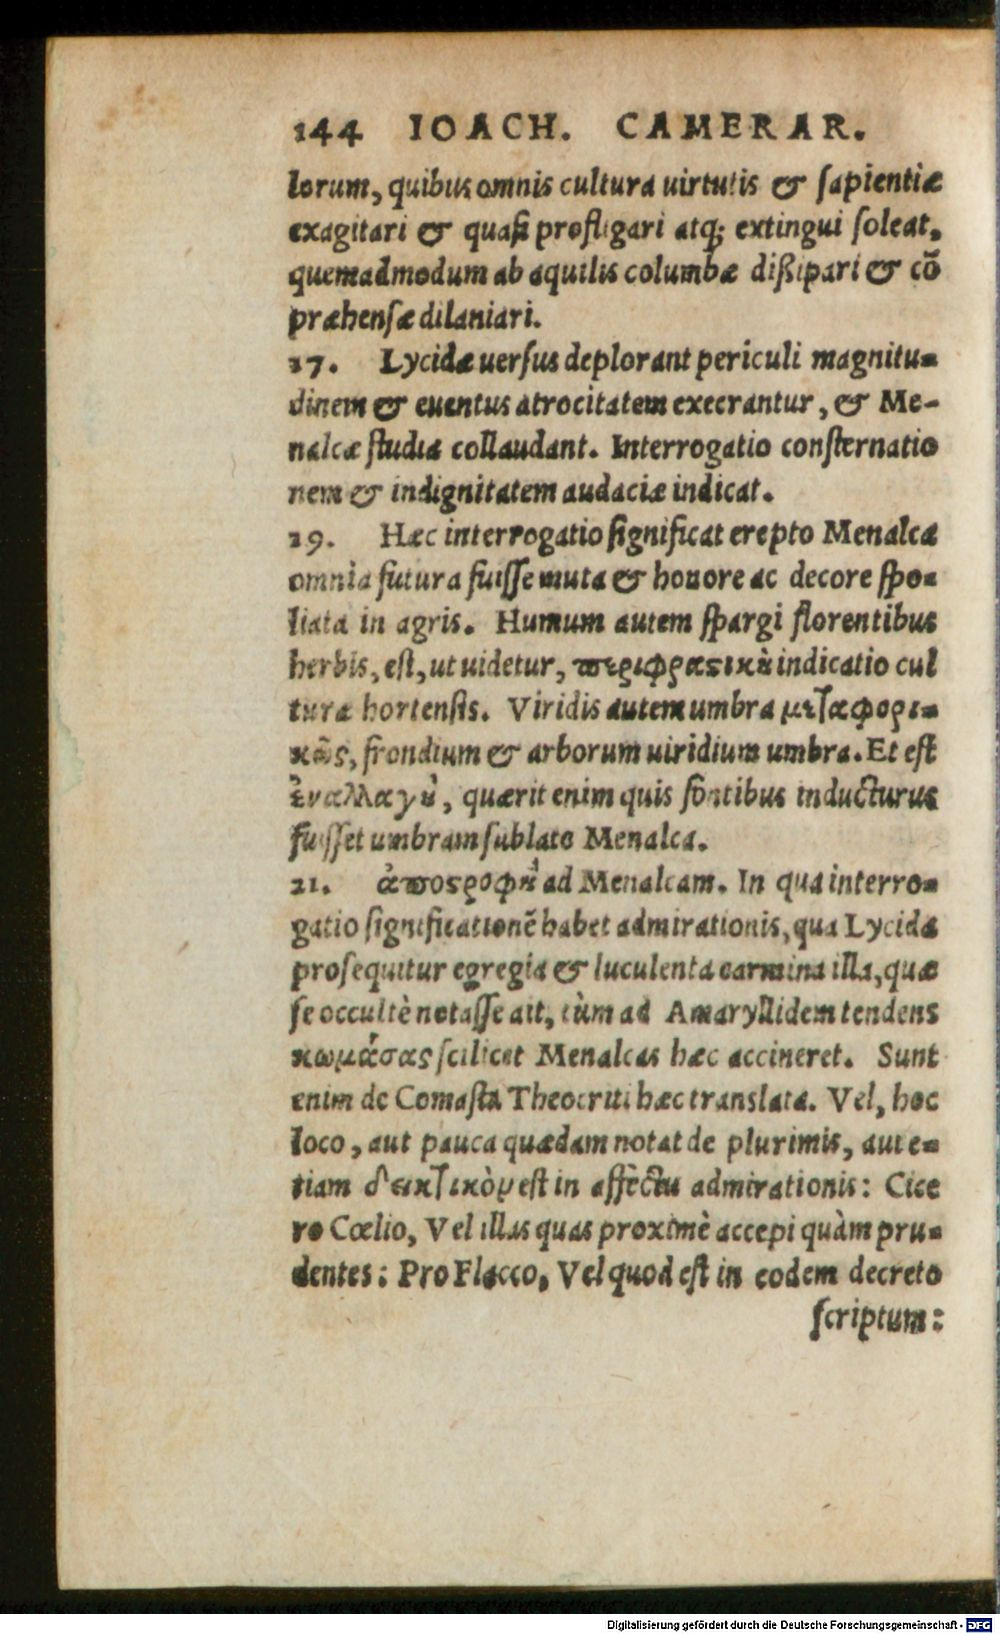 144 IOACH. CAMERAR.
lorum, quibus omnis cultura uirtutis & sapientiæ
exagitari & quasi profligari atq; extingui soleat,
quemadmodum ab aquilis columbæ dißipari & cõ
præhensæ dilaniari.
17. Lycidæ uersus deplorant periculi magnitu-
dinem & euentus atrocitatem execrantur, & Me-
nalcæ studia collaudant. Interrogatio consternatio
nem & indignitatem audaciæ indicat.
19. Hæc interrogatio significat erepto Menalca
omnia futura fuisse muta & honore ac decore spo-
liata in agris. Humum autem spargi florentibus
herbis, est, ut uidetur, περιφραστικὴ indicatio cul
turæ hortensis. Viridis autem umbra μεταφορι-
κῶς, frondium & arborum uiridium umbra. Et est
ἐναλλαγὴ, quærit enim quis fontibus inducturus
fuisset umbram sublato Menalca.
21. ἀποστροφὴ ad Menalcam. In qua interro-
gatio significationẽ habet admirationis, qua Lycida
prosequitur egregia & luculenta carmina illa, quæ
se occultè notasse ait, cùm ad Amaryllidem tendens
κωμάσας scilicet Menalcas hæc accineret. Sunt
enim de Comasta Theocriti hæc translata. Vel, hoc
loco, aut pauca quædam notat de plurimis, aut e-
tiam δεικτικὸν est in affectu admirationis: Cice
ro Cœlio, Vel illas quas proximè accepi quàm pru-
dentes: Pro Flacco, Vel quod est in eodem decreto
scriptum:
Digitalisierung gefördert durch die Deutsche Forschungsgemeinschaft - DFG